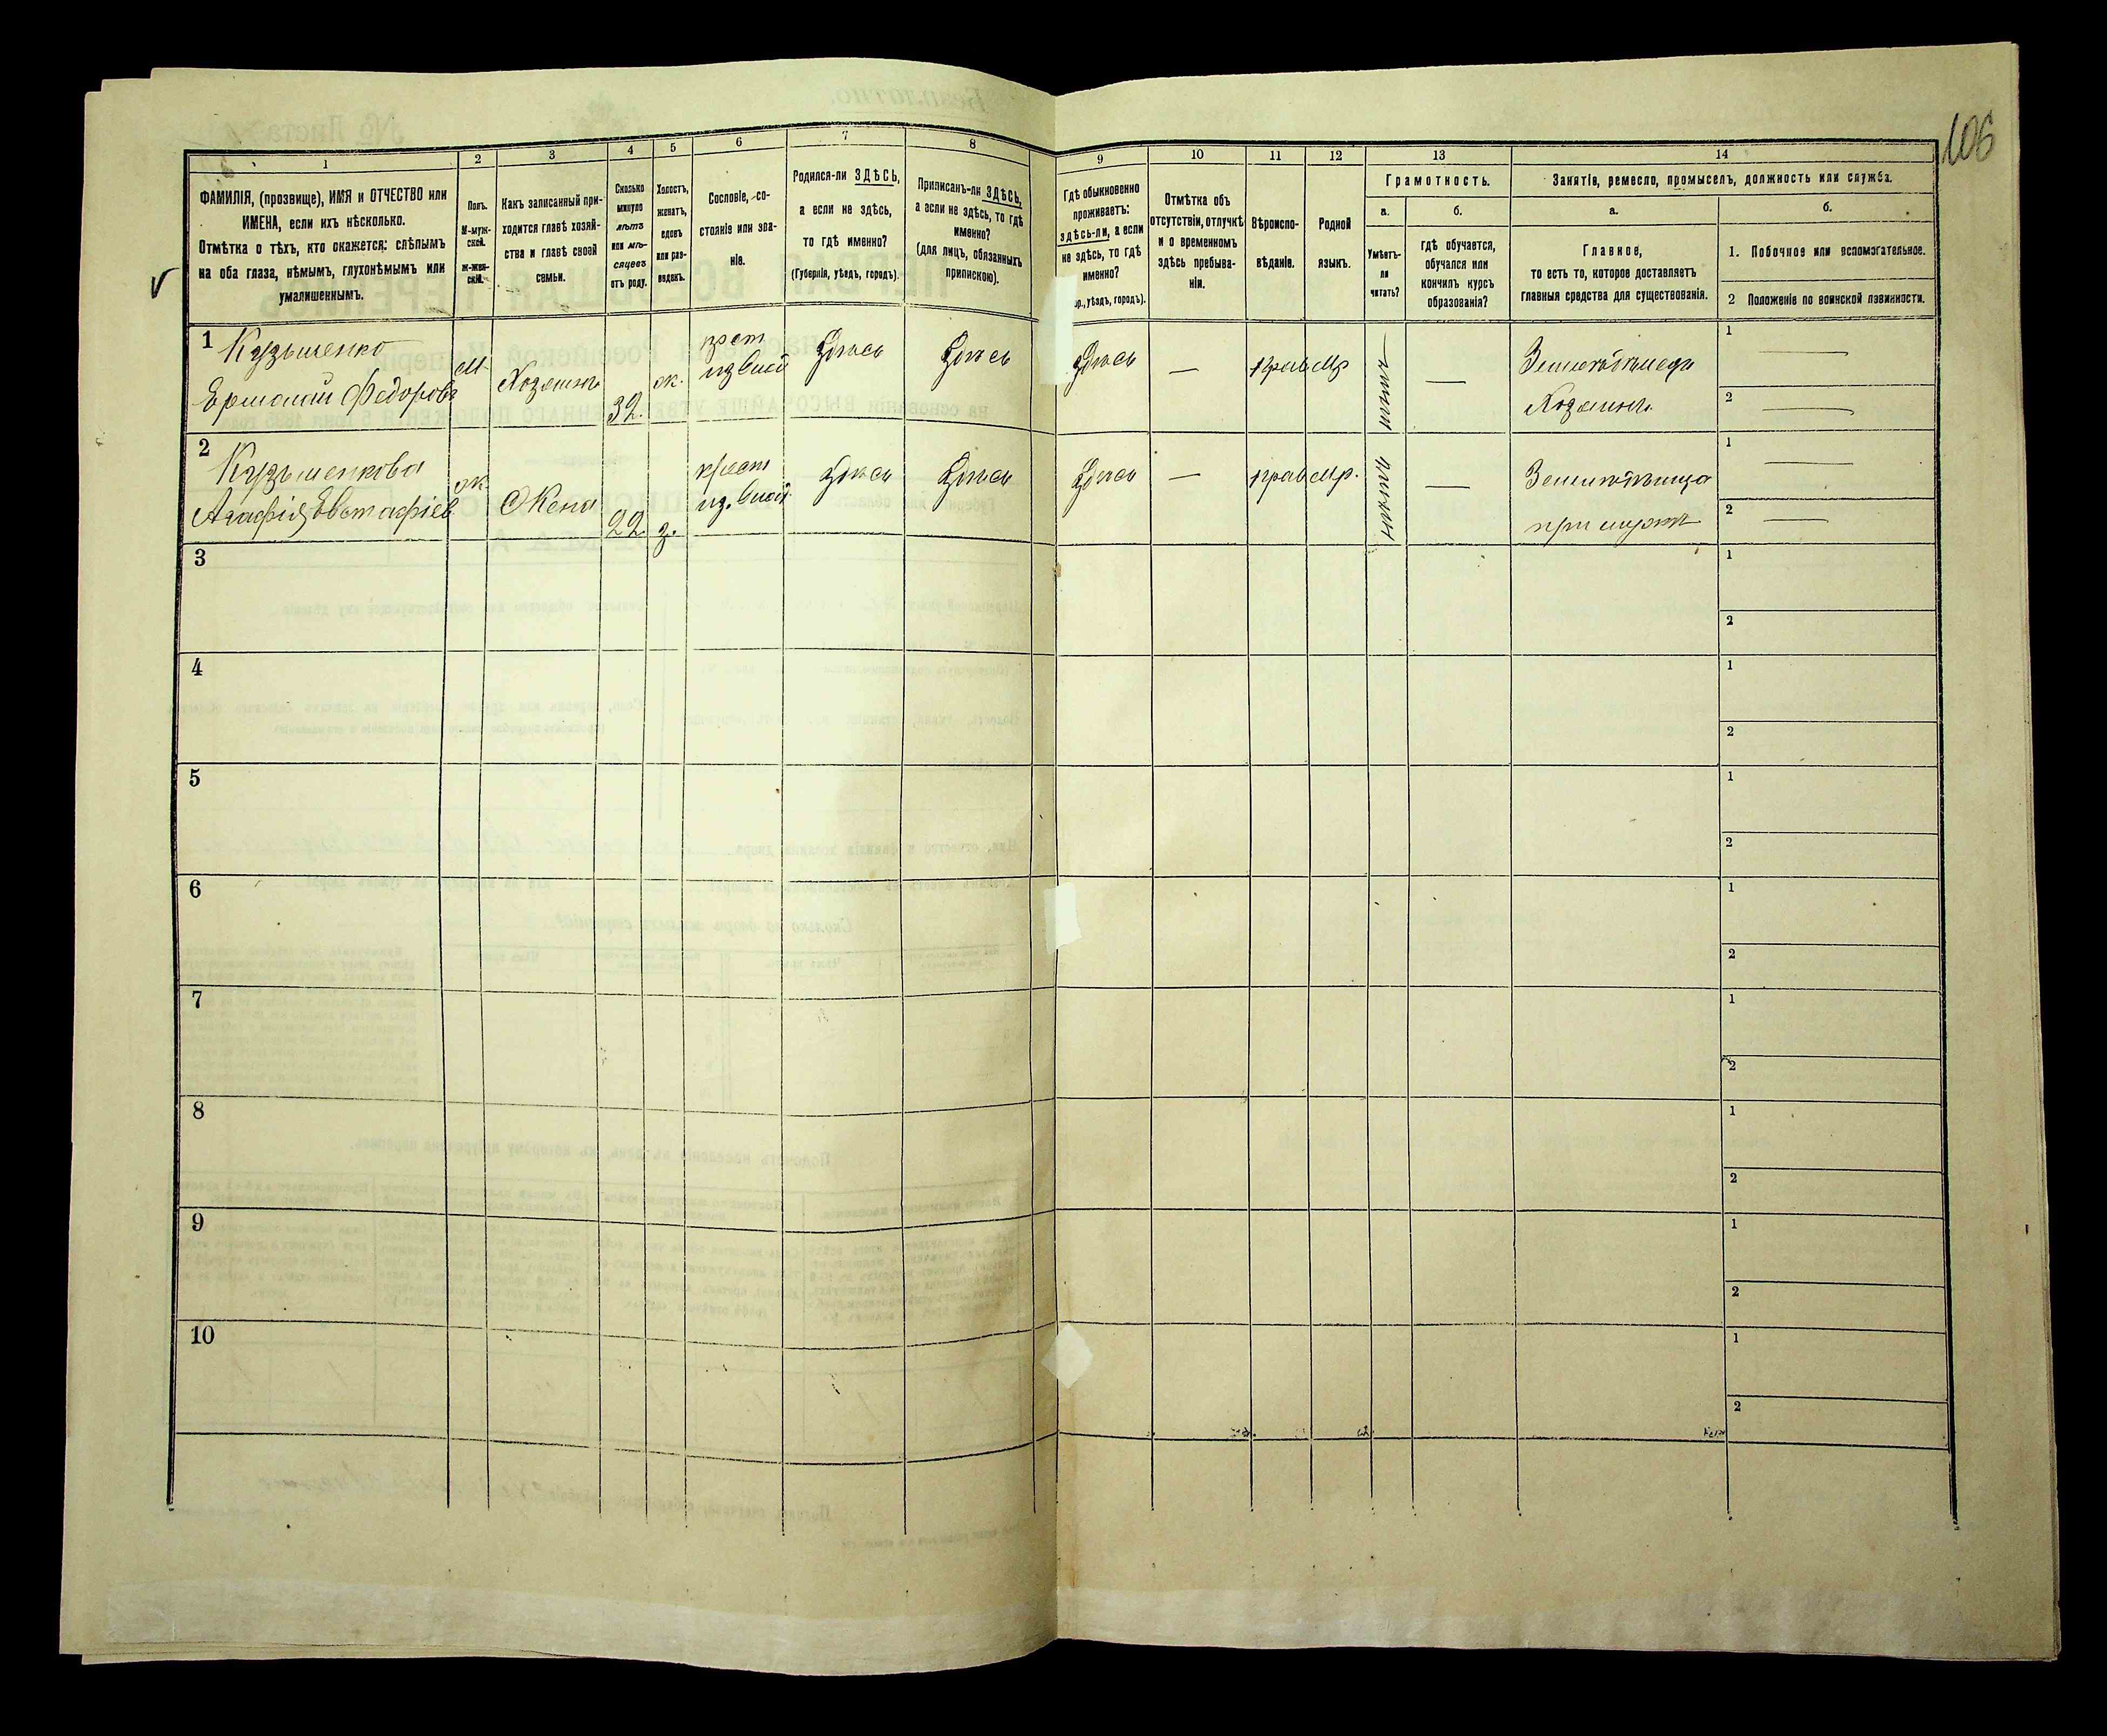 106
1
2
3
4
5
6
7
8
9
10
11
12
13
14
ФАМИЛІЯ, (прозвище), ИМЯ и ОТЧЕСТВО или
ИМЕНА, если ихъ нѣсколько.
Отмѣтка о тѣхъ, кто окажется: слѣпымъ
на оба глаза, нѣмымъ, глухонѣмымъ или
умалишеннымъ.
Полъ.
М-муж-
ской.
Ж-жен-
скій.
Какъ записанный при-
ходится главѣ хозяй-
ства и главѣ своей
семьи.
Сколько
минуло
лѣтъ
или мѣ-
сяцевъ
отъ роду.
Холостъ,
женатъ,
вдовъ
или раз-
веденъ.
Сословіе, со-
стояніе или зва-
ніе.
Родился-ли ЗДѢСЬ,
а если не здѣсь,
то гдѣ именно?
(Губернія, уѣздъ, городъ).
Приписанъ-ли ЗДѢСЬ,
а если не здѣсь, то гдѣ
именно?
(для лицъ, обязанныхъ
припискою).
Гдѣ обыкновенно
проживаетъ:
здѣсь-ли, а если
не здѣсь, то гдѣ
именно?
уѣздъ, городъ).
Отмѣтка объ
отсутствіи, отлучкѣ
и о временномъ
здѣсь пребыва-
ніи.
Вѣроиспо-
вѣданіе.
Родной
языкъ.
Грамотность.
а.
Умѣетъ-
ли
читать?
б.
гдѣ обучается,
обучался или
кончилъ курсъ
образованія?
Занятіе, ремесло, промыселъ, должность или служба.
а.
Главное,
то есть то, которое доставляетъ
главныя средства для существованія.
б.
1. Побочное или вспомогательное.
2 Положеніе по воинской повинности.
1 Кузьменко
Ермолай Федоровъ
М.
Хозяинъ
32.
ж.
крест
из влад
Здѣсь
Здѣсь
Здѣсь
—
прав
Мр
—
Земледѣлецъ
Хозяинъ.
1 —
2 —
2
Кузьменкова
Агафія Евстафіев
ж
Жена
22
з.
крест
из. влад.
Здѣсь
Здѣсь
Здѣсь
—
прав
Мр.
—
при мужѣ
1 —
2 —
3
1
2
4
1
2
5
1
2
6
1
2
7
1
2
8
1
2
9
1
2
10
1
2